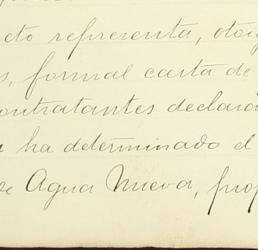 cto representa, otorg
s, formal carta de
contratantes declara
ha determinado el
de Agua Nueva, prop